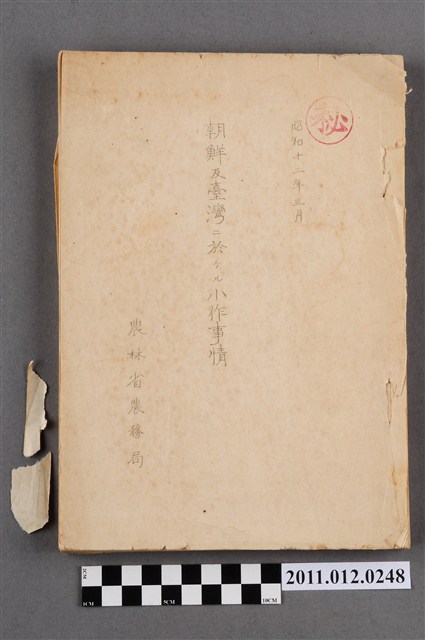 秘
昭和十二年三月
朝鮮及臺灣ニ於ケル小作事情
農林省農務局
1CM
1CM
5CM
10CM
2011.012.0248